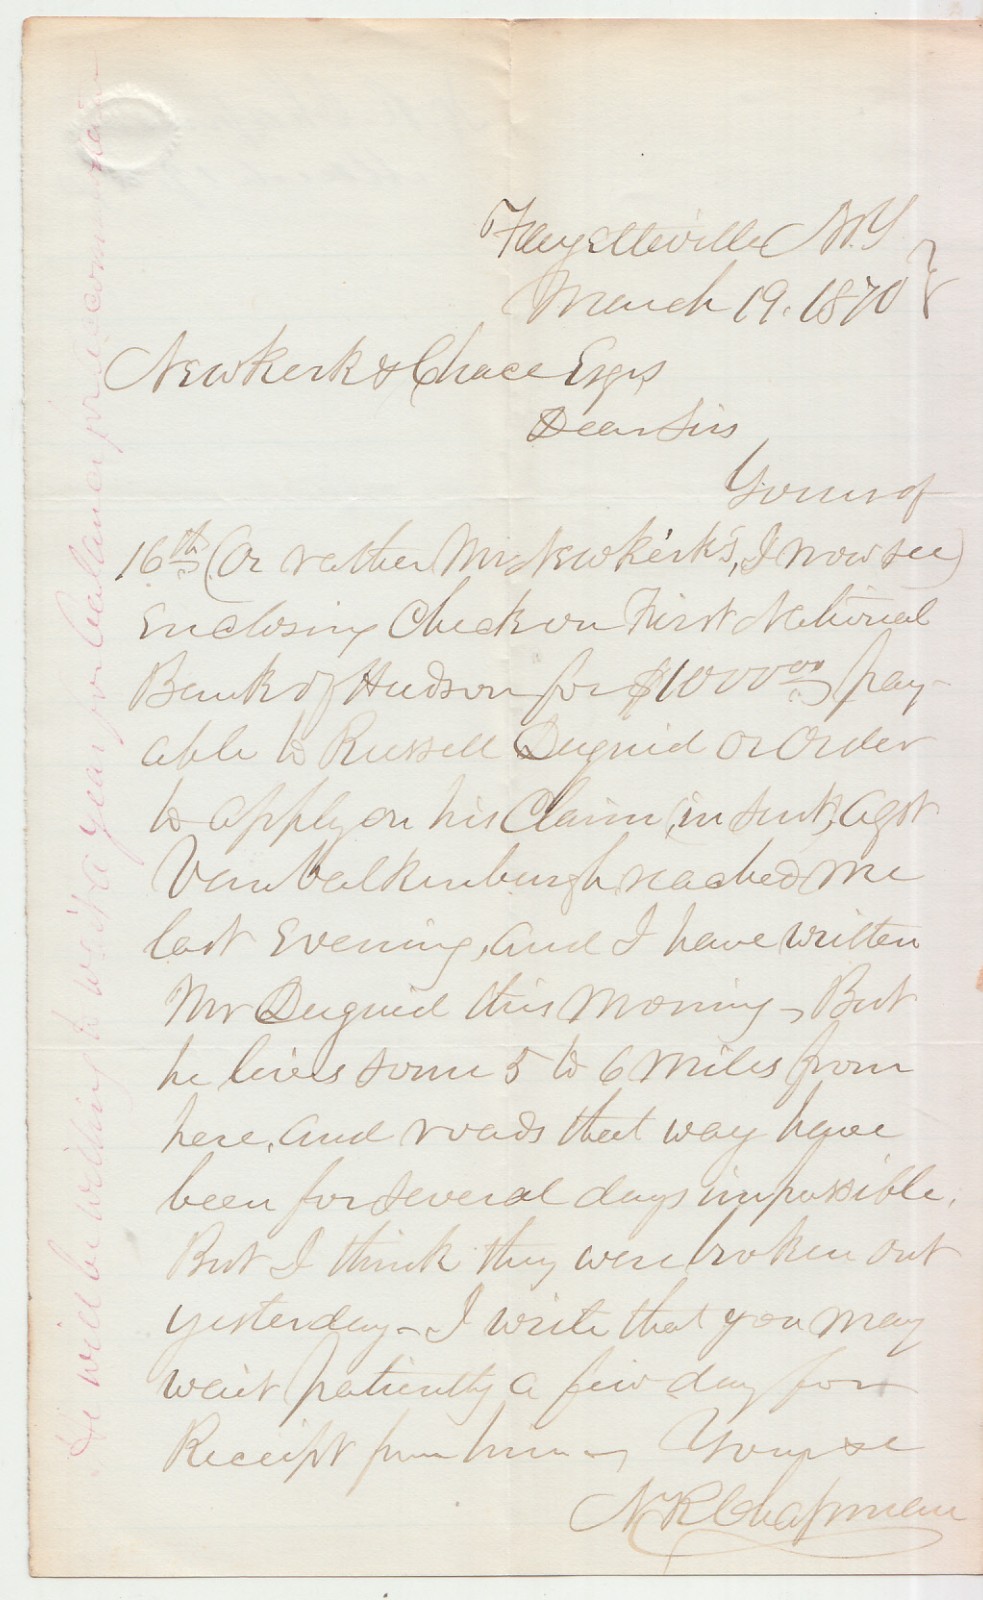 Fayetteville N.Y
March 19. 1870
Newkerk & Chace Esqrs
Dear Sirs
Yours of
16th (Or rather Mr Newkerk's, I now see)
Enclosing Check on First National
Bank of Hudson for $1000.00 pay-
able to Russell Duguid or Order
to apply on his Claim (in suit) agst
Van Valkenburgh reached me
last Evening, and I have written
Mr Duguid this morning - But
he lives some 5 to 6 miles from
here, and roads that way have
been for several days impossible.
But I think they were broken out
yesterday - I write that you may
wait patiently a few day for
Receipt from him - Yours &c
N R Chapman
He will be willing to wait a year for ballance